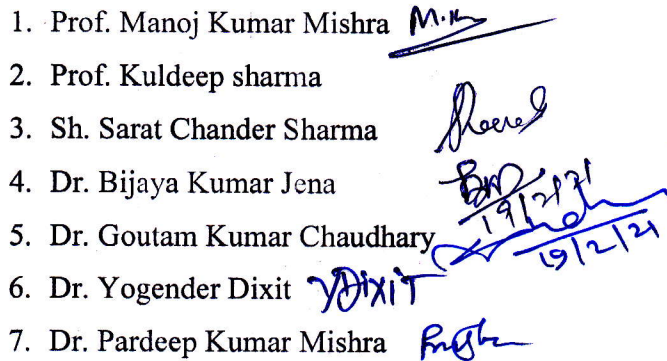 1. Prof. Manoj Kumar Mishra
2. Prof. Kuldeep sharma
3. Sh. Sarat Chander Sharma
4. Dr. Bijaya Kumar Jena
19/2/21
5. Dr. Goutam Kumar Chaudhary
19/2/21
6. Dr. Yogender Dixit YDixiT
7. Dr. Pardeep Kumar Mishra